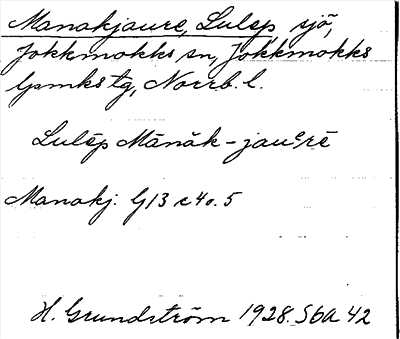 Manakjaure, Lulep sjö,
Jokkmokks sn, Jokkmokks
lpmks tg, Norrb. l.
Lulēp Mānăk-jauᵉrē
Manakj. G13 c4o.5
H. Grundström 1928. S6a 42